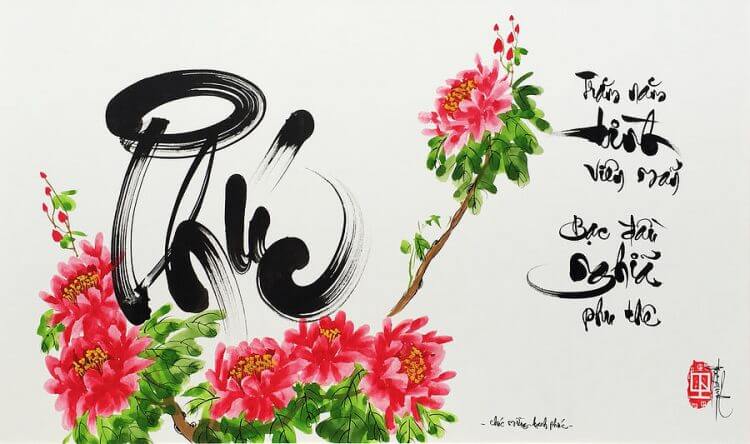 Phúc
Trăm năm
tình
viên mãn
Bạc đầu
nghĩa
phu thê
- chúc mừng hạnh phúc -